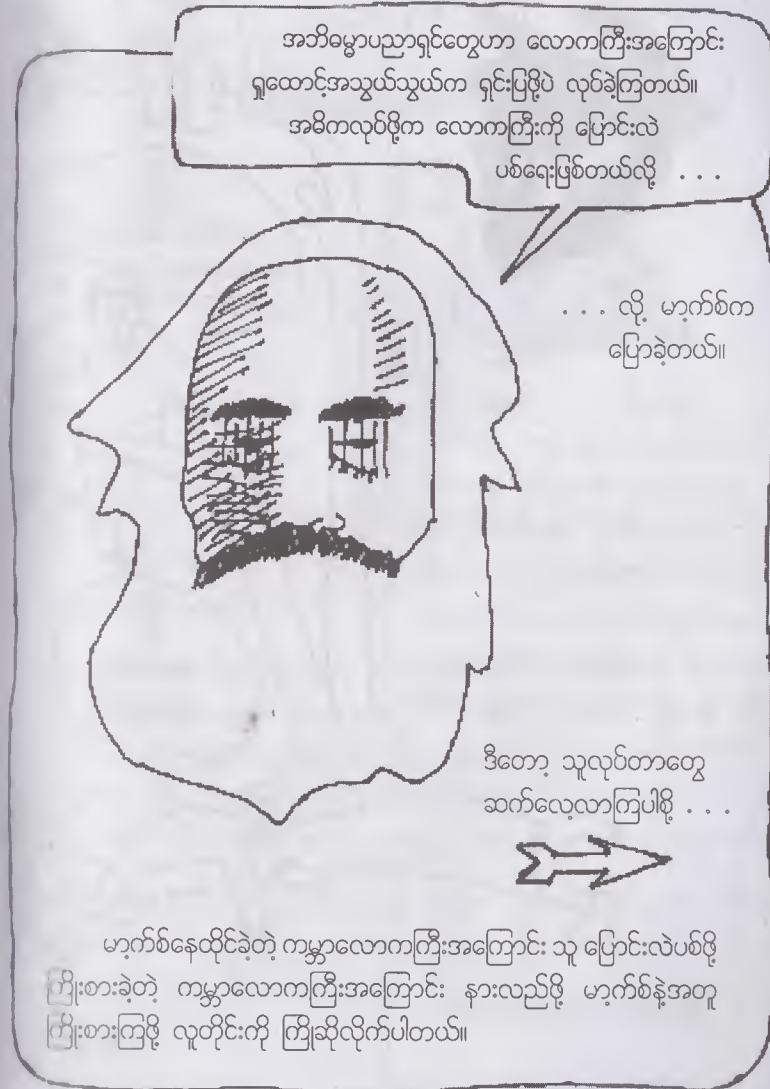 အဘိဓမ္မာပညာရှင်တွေဟာ လောကကြီးအကြောင်း
ရှုထောင့်အသွယ်သွယ်က ရှင်းပြဖို့ပဲ လုပ်ခဲ့ကြတယ်။
အဓိကလုပ်ဖို့က လောကကြီးကို ပြောင်းလဲ
ပစ်ရေးဖြစ်တယ်လို့ . . .
. . . လို့ မာ့က်စ်က
ပြောခဲ့တယ်။
ဒီတော့ သူလုပ်တာတွေ
ဆက်လေ့လာကြပါစို့ . . .
မာ့က်စ်နေထိုင်ခဲ့တဲ့ ကမ္ဘာလောကကြီးအကြောင်း သူ ပြောင်းလဲပစ်ဖို့
ကြိုးစားခဲ့တဲ့ ကမ္ဘာလောကကြီးအကြောင်း နားလည်ဖို့ မာ့က်စ်နဲ့အတူ
ကြိုးစားကြဖို့ လူတိုင်းကို ကြိုဆိုလိုက်ပါတယ်။